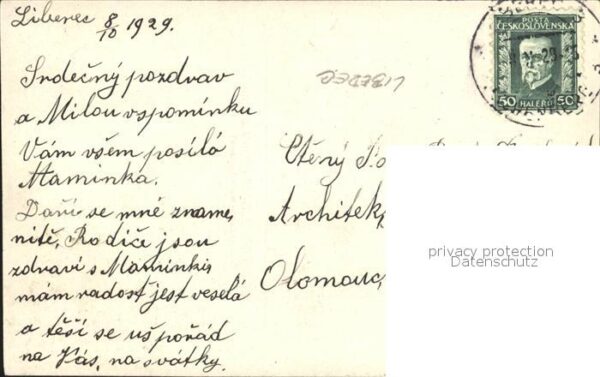 Liberec 8/10 1929.
Srdečný pozdrav
a Milou vspomínku
Vám všem posílá
Maminka.
Daří se mně zname,
nitě, Rodiče jsou
zdraví s Maminkis
mám radost jest veselá
a těší se uš pořád
na Vás, na svátky.
LIBEREC
POSTA
ČESKOSLOVENSKÁ
50 HALÉŘŮ 50
Ctěný
Architek
Olomouc
privacy protection
Datenschutz